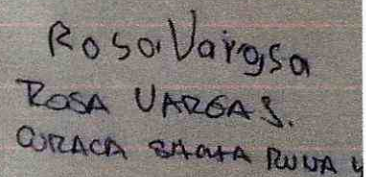 Rosa Vargsa
ROSA VARGAS.
CURACA SACHA RUNA Y